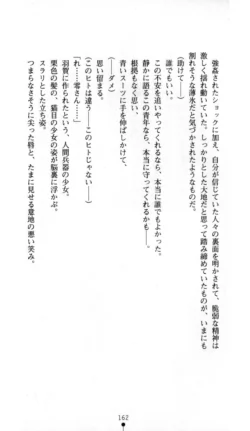 強姦されたショックに加え、自分が信じていた人々の裏面を明かされて、脆弱な精神は
激しく揺れ動いていた。しっかりとした大地だと思って踏み締めていたものが、いまにも
割れそうな薄氷だと気づかされたようなものだ。
(助けてー)
誰でもいい。
この不安を追いやってくれるなら、本当に誰でもよかった。
静かに語るこの青年なら、本当に守ってくれるかも――。
根拠もなく思い、
青いスーツに手を伸ばしかけて、
(――ダメ)
思い留まる。
(このヒトは違う――このヒトじゃない――)
「れ……零さん……」
羽賀に作られたという、人間兵器の少女。
栗色の髪の、猫目の少女の姿が脳裏に浮かぶ。
スラリとした立ち姿。
つまらなさそうに尖った唇と、たまに見せる意地の悪い笑み。
162